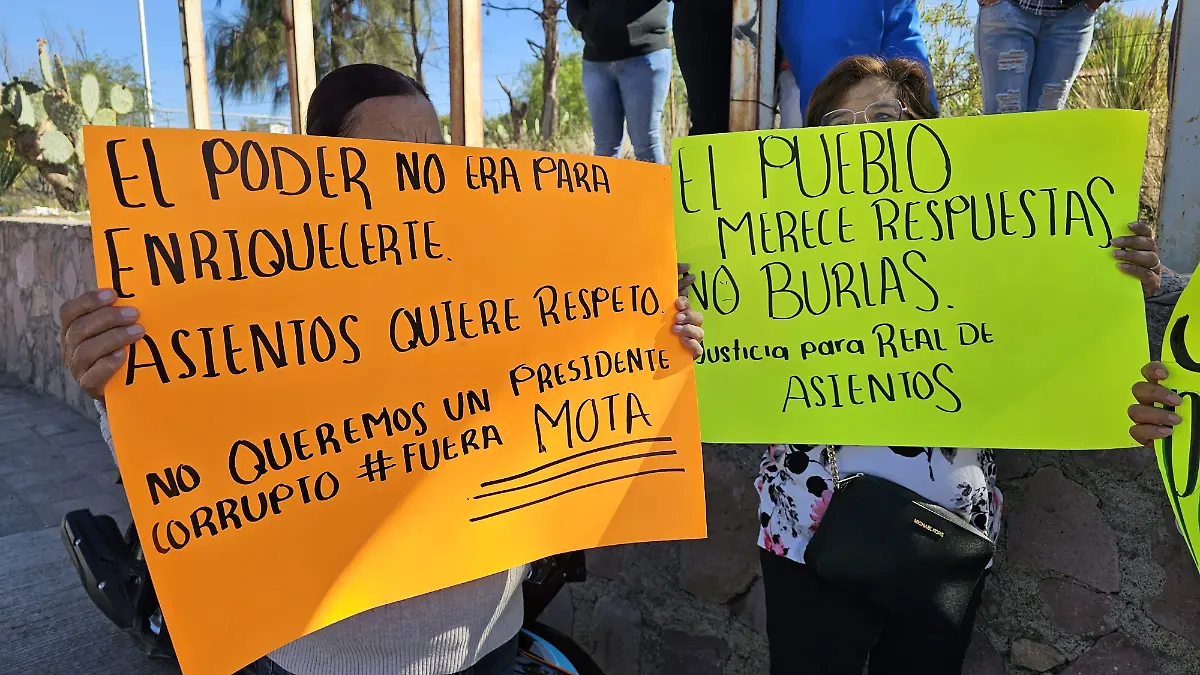 EL PODER NO ERA PARA
ENRIQUECERTE.
ASIENTOS QUIERE RESPETO.
NO QUEREMOS UN PRESIDENTE
CORRUPTO #FUERA MOTA
El PUEBLO
MERECE RESPUESTAS
NO BURLAS.
Justicia para REAL DE
ASIENTOS
MICHAEL KORS